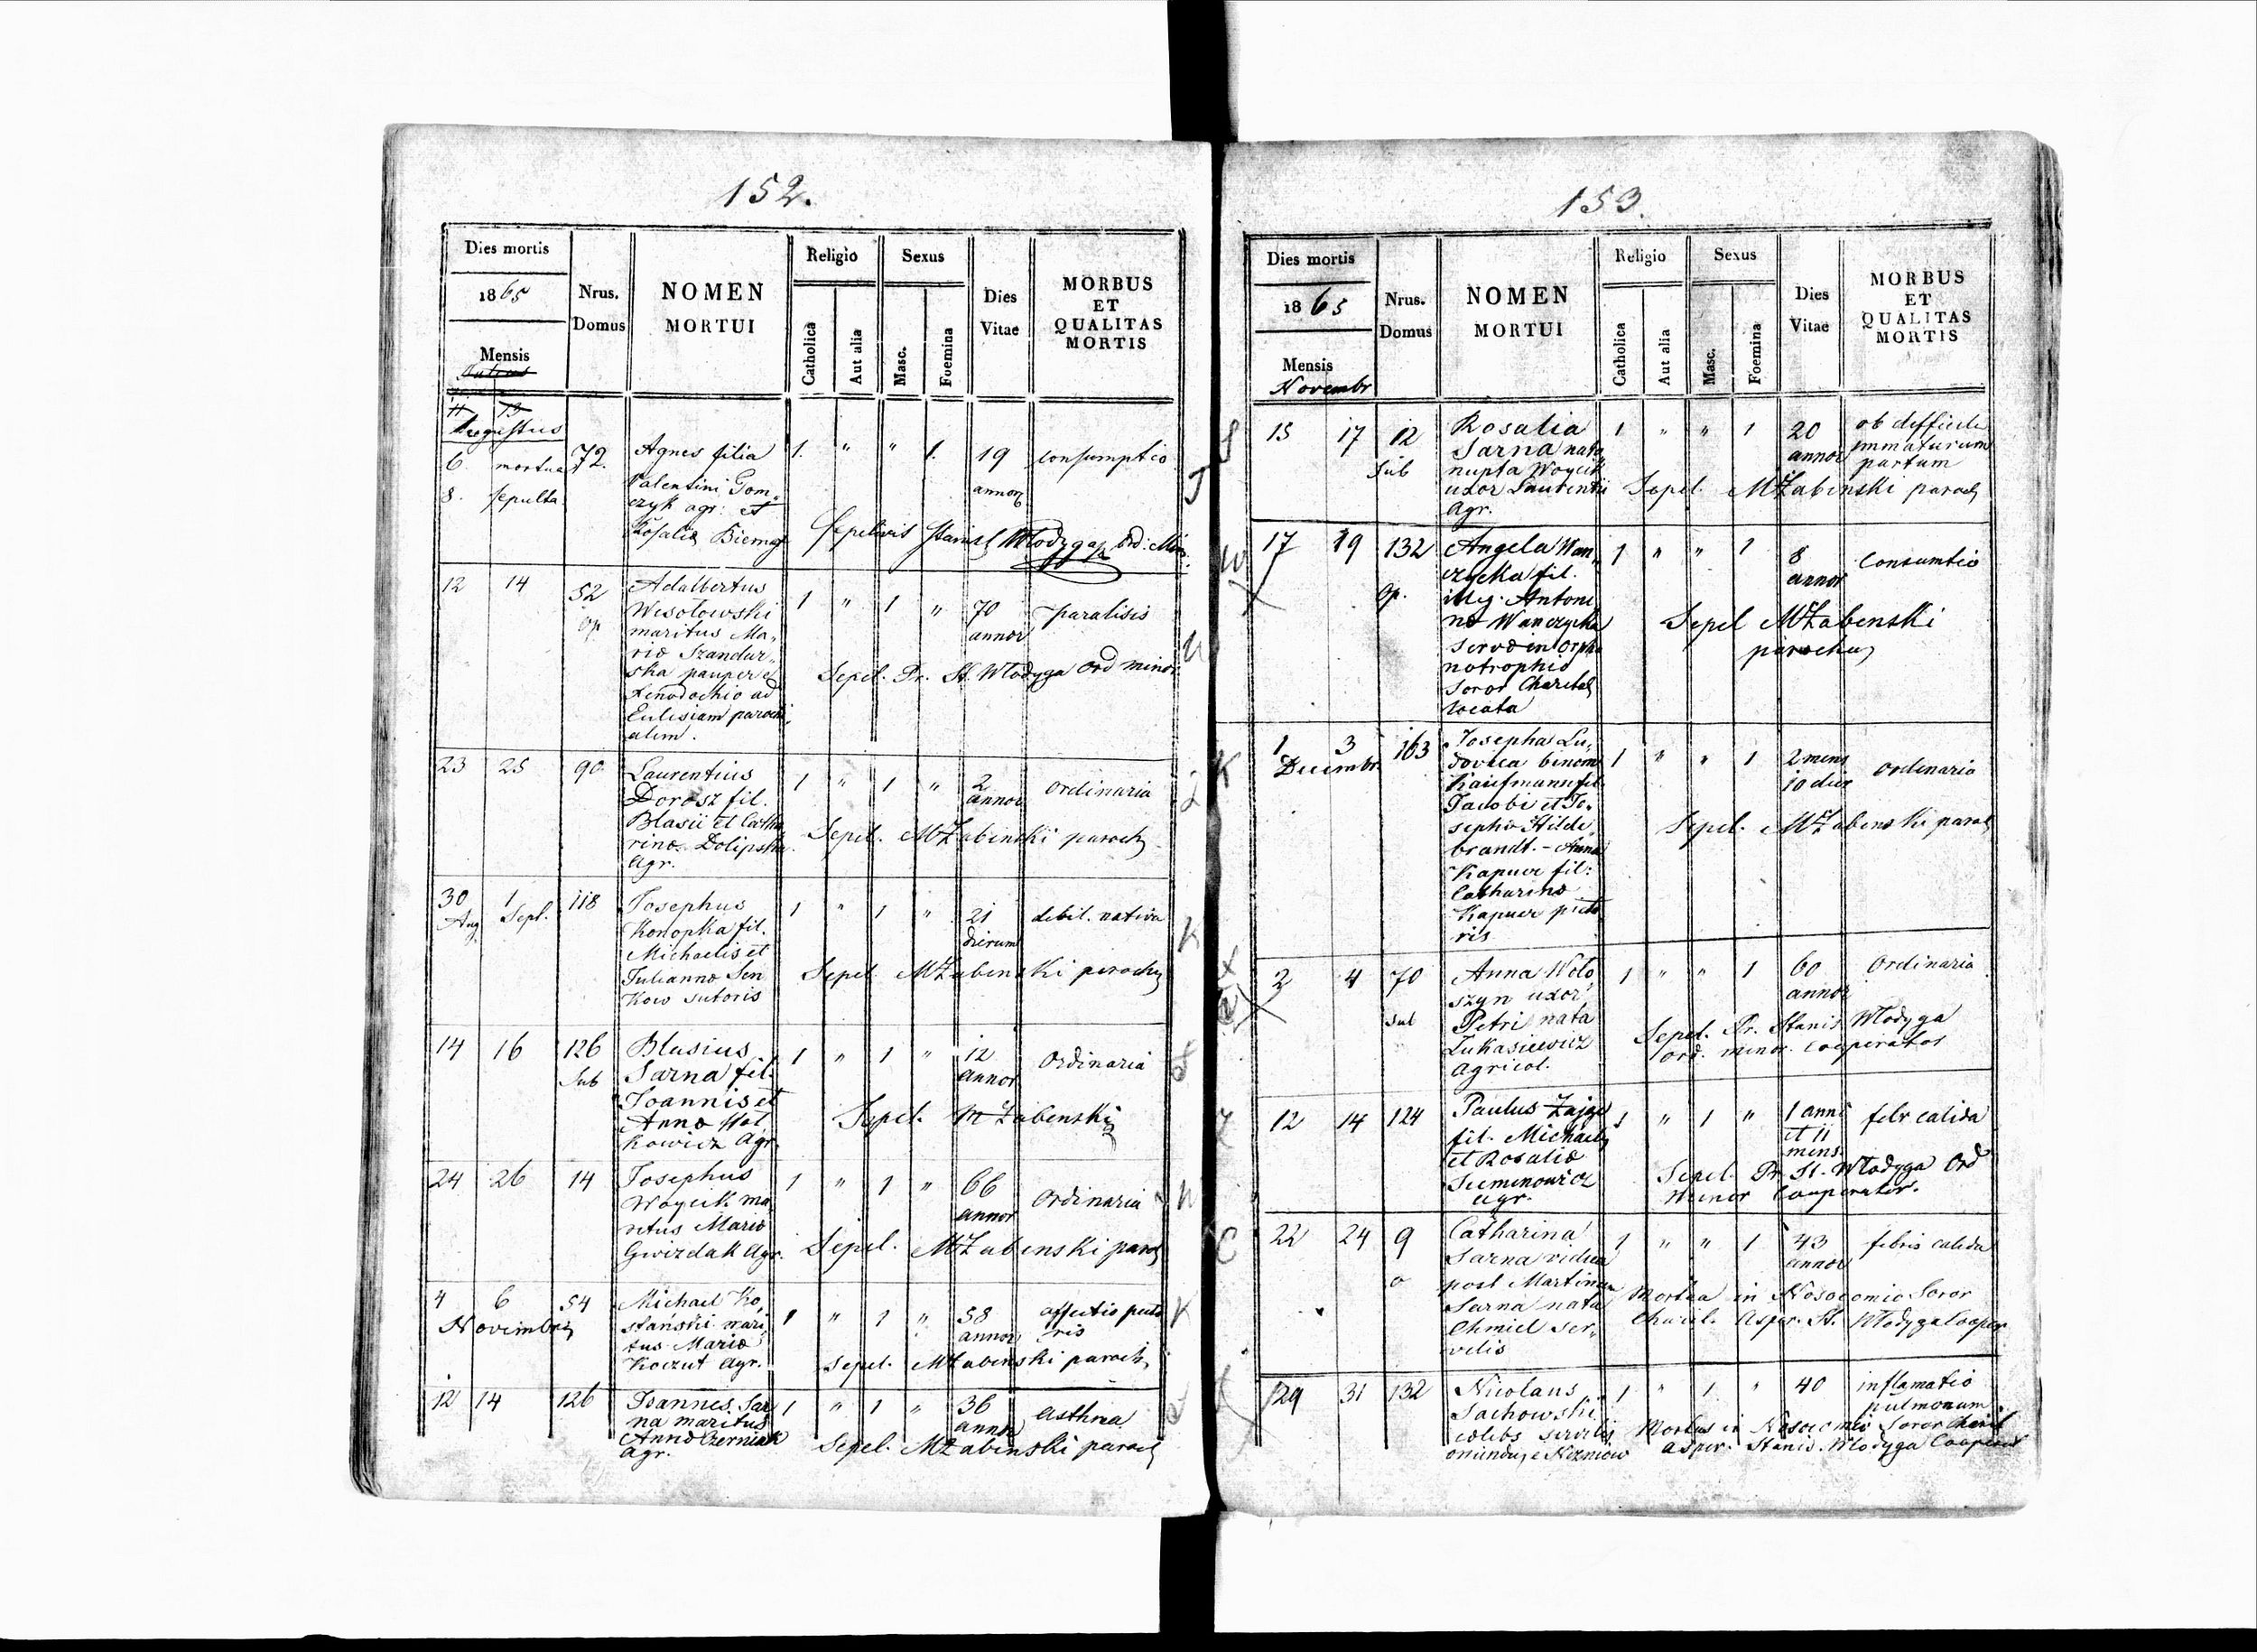 152.
Dies mortis
1865
Mensis
Nrus.
Domus
NOMEN
MORTUI
Religio
Catholica
Aut alia
Sexus
Masc.
Foemina
Dies
Vitae
MORBUS
ET
QUALITAS
MORTIS
11 13
Augustus
6. mortua
8. sepulta
72.
Agnes filia
Valentini Tom„
czyk agr: et
Rosalia
1. " " 1.
19
annor
consumptio
Sepelivit Stanisl Włodyga Ord: Min.
12 14
52
op
Adalbertus
Wesołowski
maritus Ma„
ria Szandur„
ska pauper e
Xenodochio ad
Eclisiam parochi
alem.
1 " 1 "
70
annor
paralisis
Sepel. Pr. St. Włodyga Ord minor
23 25
90
Laurentius
Dorosz fil.
Blasii et Catha
rina Dolipska
Agr.
1 " 1 "
2
annor
ordinaria
Sepel. MŻabinski paroch
30 1
Aug Sept.
118
Josephus
Konopka fil.
Michaelis et
Julianna Sen
Kow sutoris
1 " 1 "
21
dierum
debil. nativa
Sepel MŻabenski parochus
14 16
126
Sub
Blasius
Sarna fil.
Joannis et
Anna
kowicz Agr.
1 " 1 "
12
annor
Ordinaria
Sepel. M Żabenski
24 26
14
Josephus
Woycik ma
ritus Maria
Gwizdak Agr.
1 " 1 "
66
annor
ordinaria
Sepel. MŻabenski paroch
4 6
Novembris
54
Michael Ko„
stański mari
tus Maria
Koczut Agr.
1 " 1 "
58
annor
affectio pecto
ris
Sepel. MŻabenski paroch
12 14
126
Joannes Sar
na maritus
Anna Czerniak
agr.
1 " 1 "
36
annor
Asthma
Sepel. MŻabinski paroch
153.
Dies mortis
1865
Mensis
Novembr
Nrus.
Domus
NOMEN
MORTUI
Religio
Catholica
Aut alia
Sexus
Masc.
Foemina
Dies
Vitae
MORBUS
ET
QUALITAS
MORTIS
15 17
12
Sub
Rosalia
Sarna nata
nupta Woycik
uxor Laurentii
Agr.
1 " " 1
20
annor
ob difficile
immaturum
partum
Sepel. MŻabinski paroch
17 19
132
op.
Angela Wan„
czycka fil.
illeg. Antoni
na Wanczycka
serva in Orpha
notrophio
Soror Charitat
locata
1 " " 1
8
annor
Consumtio
Sepel MŻabenski
parochus
1 3
Decembr.
163
Josepha Lu„
dovica binom
Kaufmann fil.
Jacobi et Jo„
sepha Hilde„
brandt. - Anna
Kapuer fil:
Catharina
Kapuer picto
ris
1 " " 1
2 mens
10 dier
ordinaria
Sepel. MŻabenski paroch
2 4
70
Sub
Anna Woło
szyn uxor
Petri nata
Łukasiewicz
agricol.
1 " " 1
60
annor
Ordinaria
Sepel. Pr. Stanis Włodyga
ord. minor. Cooperator
12 14
124
Paulus Zając
fil. Michaelis
et Rosalia
Siemionowicz
agr.
1 " 1 "
1 anni
et 11
mens.
febr calida
Sepel. Pr. St. Włodyga Ord
Minor Cooperator.
22 24
9
o
Catharina
Sarna vidua
post Martinum
Sarna nata
Chmiel ser„
vilis
1 " " 1
43
annor
febris calida
Mortua in Nosocomio Soror
Charit. Asper. St. Włodyga Cooper
29 31
132
Nicolaus
Sachowski
celebs servilis
oriundus e
1 " 1 "
40
inflamatio
pulmonum.
Mortus in Nosocomio Soror Charit
asper. Stanis. Włodyga Cooperat